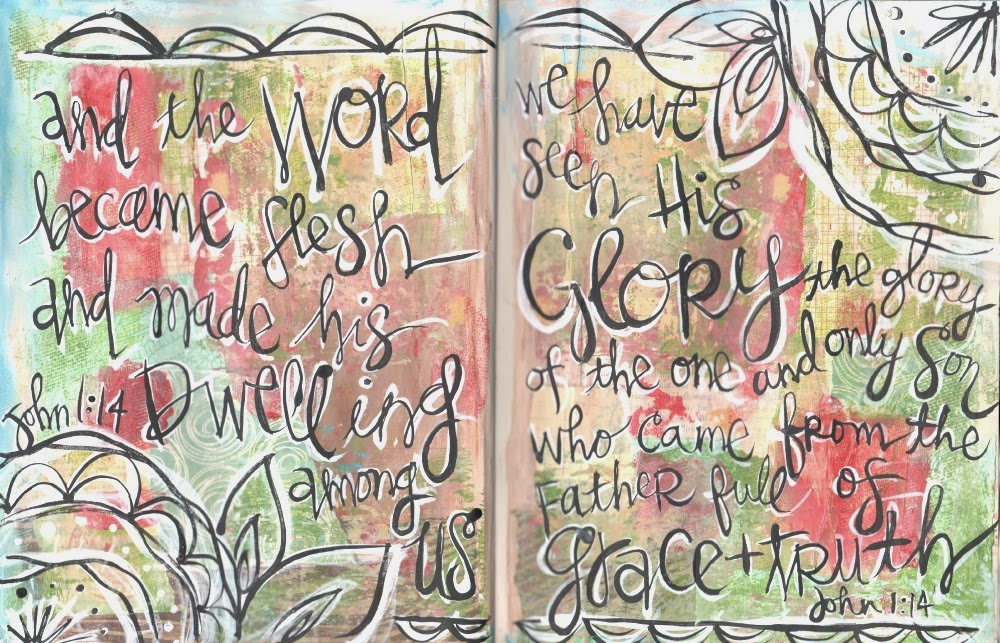 and the WORD
became flesh
and made his
John 1:14 Dwelling
among
us
we have
seen His
GLORY the glory
of the one and only Son
who came from the
FatheR full of
grace + tRuth
John 1:14